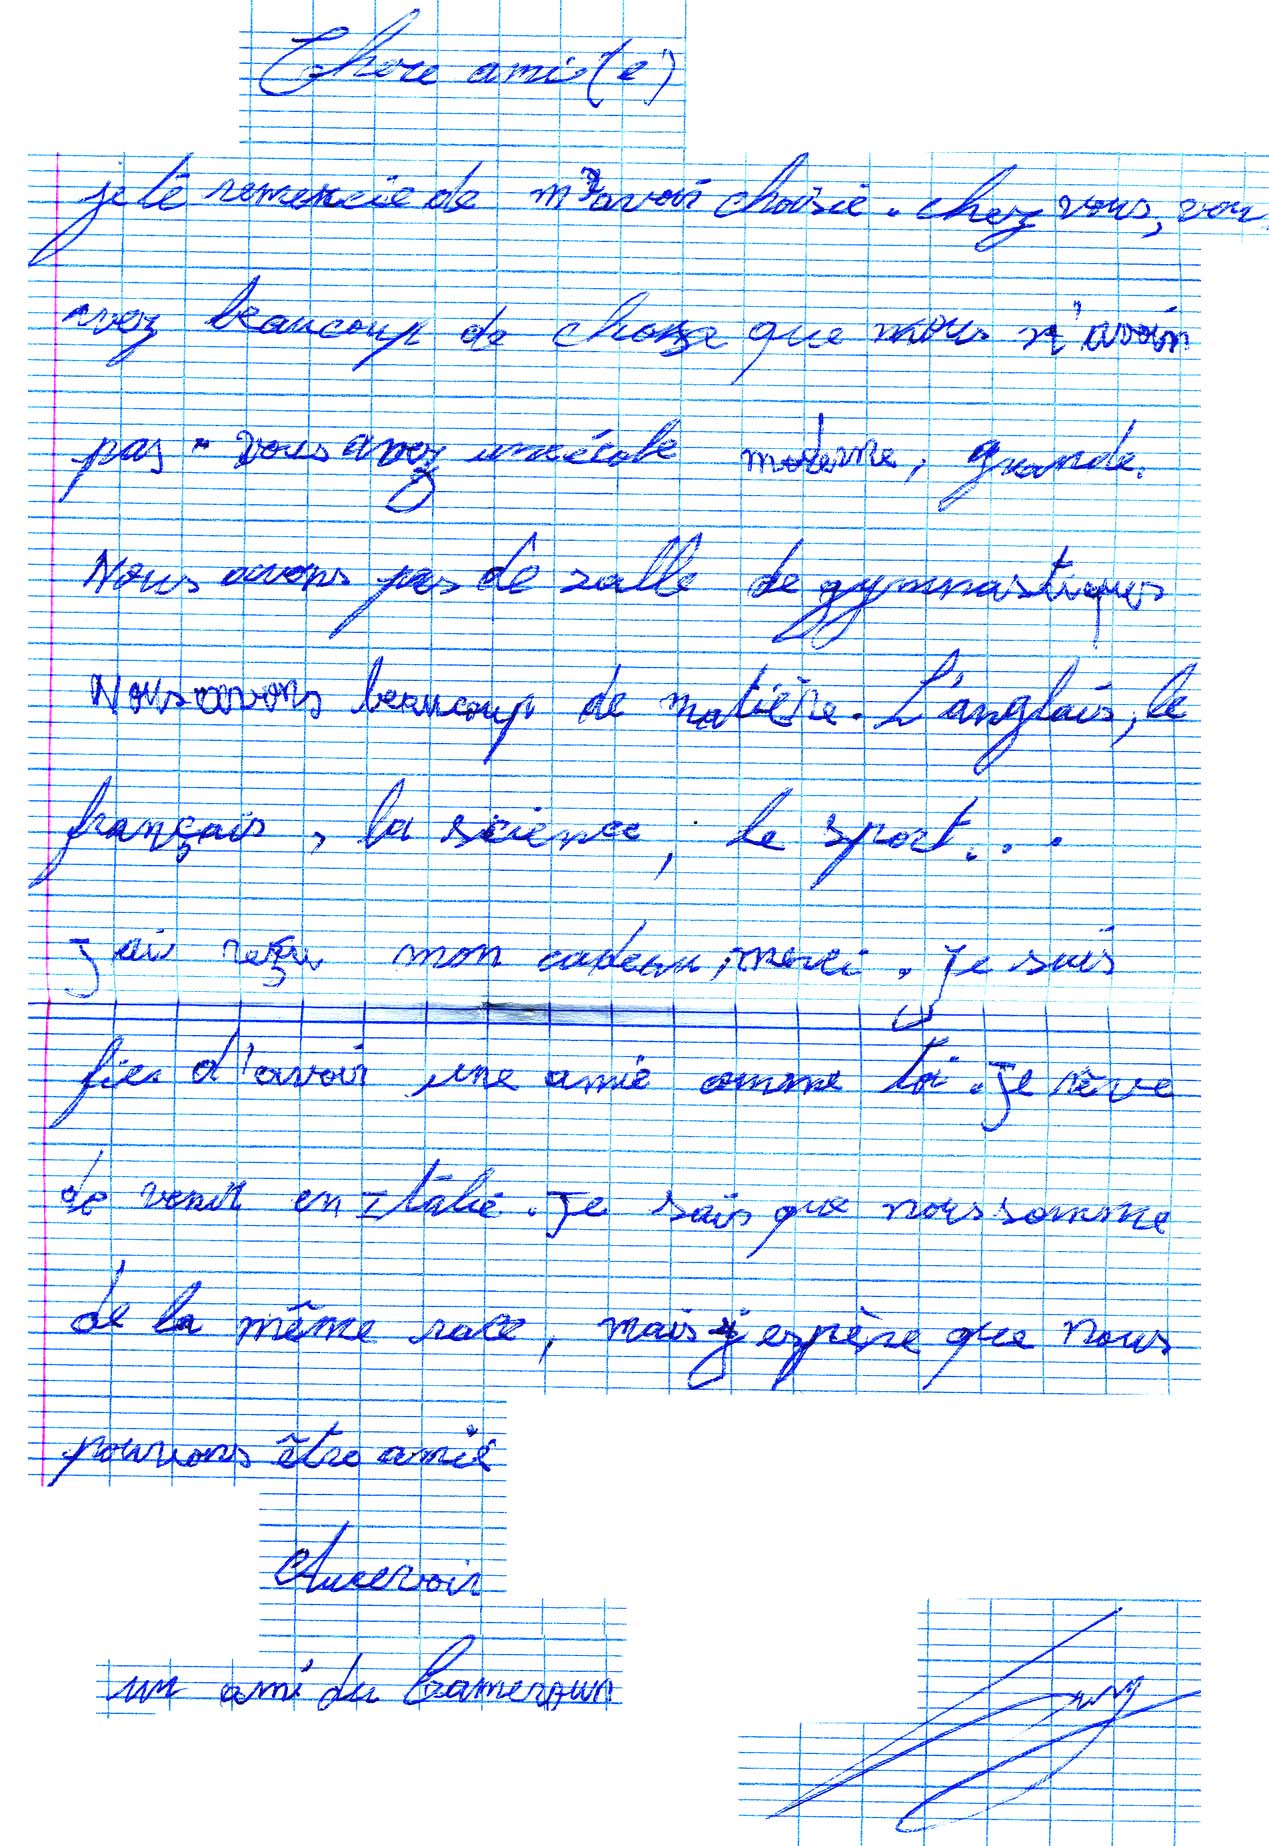 Chere ami(e)
je te remercie de m'avoir choisie. chez vous, vou
avez beaucoup de chose que nous n'avoin
pas. vous avez une école moderne, grande.
Nous avons pas de salle de gymnastiques
Nous avons beaucoup de matière. L'anglais, le
français, la science, le sport...
J'ai reçu mon cadeau, merci. Je suis
fier d'avoir une amie comme toi. Je rêve
de venir en Italie. Je sais que nous somme
de la même race, mais j'espère que nous
pouvons être amie
Aurevoir
un ami du Cameroun